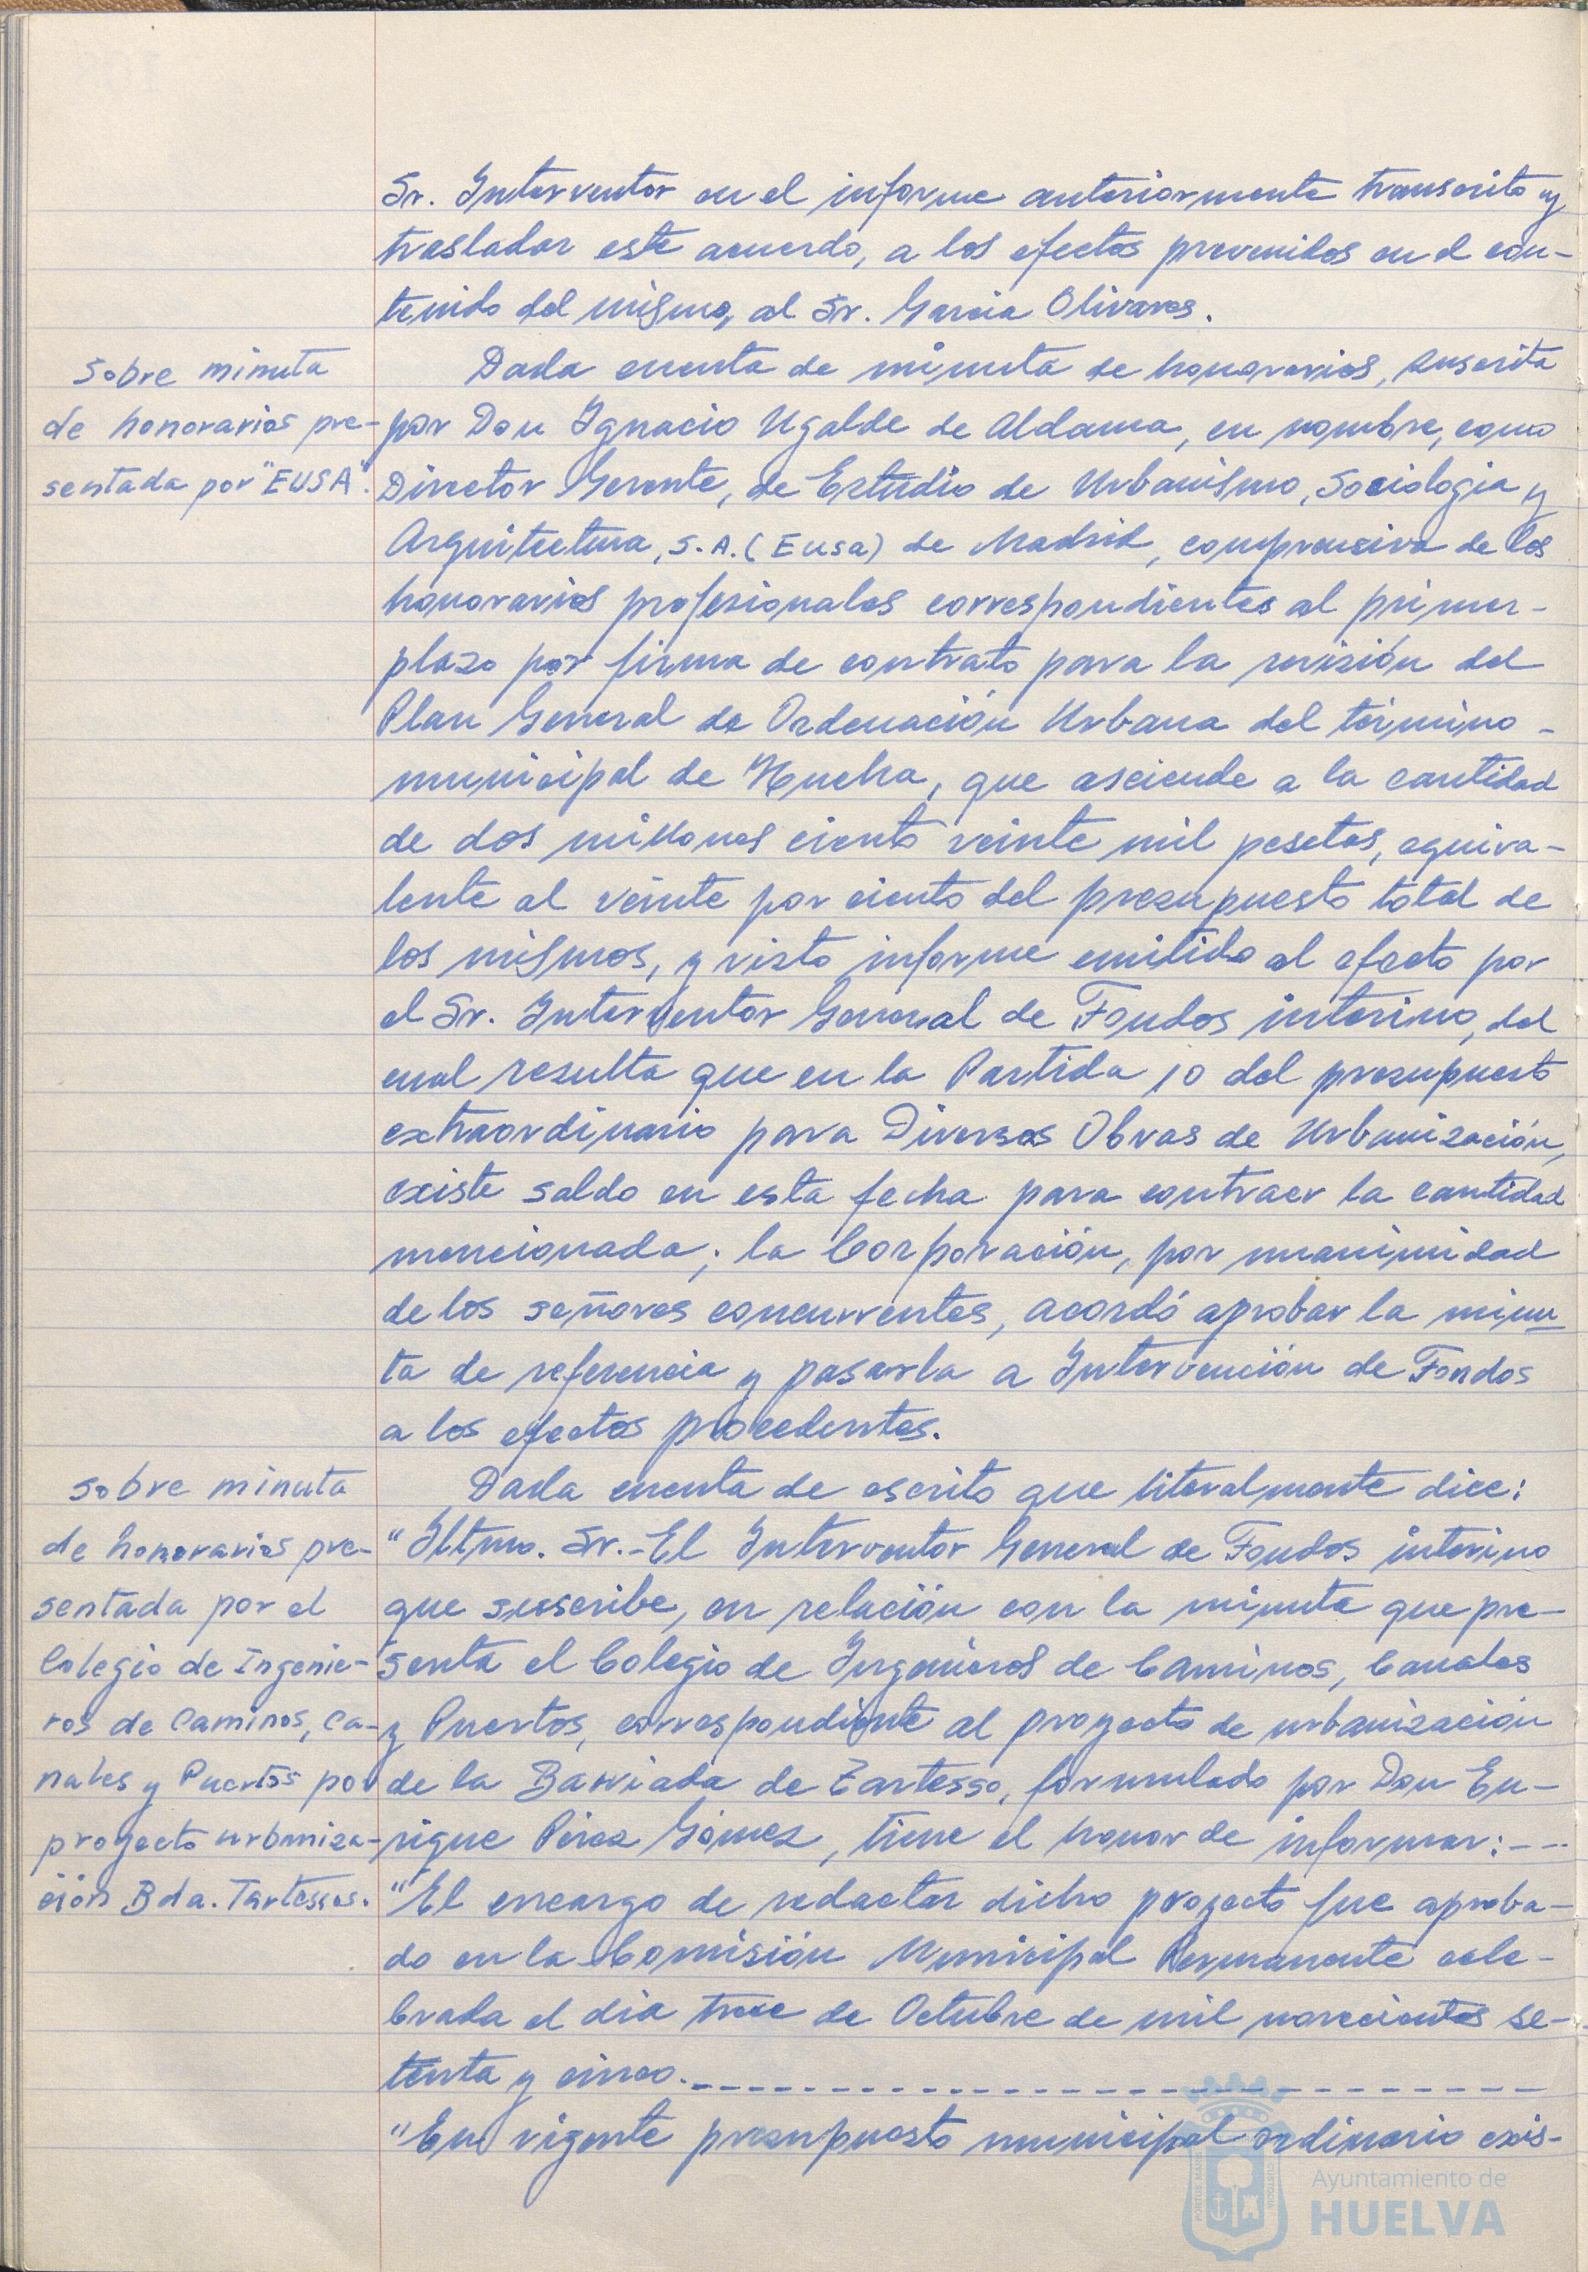 Sr. Interventor en el informe anteriormente transcrito y
trasladar este acuerdo, a los efectos prevenidos en el con-
tenido del mismo, al Sr. Garcia Olivares.
Sobre minuta
de honorarios pre-
sentada por "EUSA".
Dada cuenta de minuta de honorarios, suscrita
por Don Ignacio Ugalde de Aldama, en nombre, como
Director Gerente, de Estudio de Urbanismo, Sociologia y
Arquitectura, S.A. (Eusa) de Madrid, comprensiva de los
honorarios profesionales correspondientes al primer-
plazo por firma de contrato para la revisión del
Plan General de Ordenación Urbana del término -
municipal de Huelva, que asciende a la cantidad
de dos millones ciento veinte mil pesetas, equiva-
lente al veinte por ciento del presupuesto total de
los mismos, y visto informe emitido al efecto por
el Sr. Interventor General de Fondos interino, del
cual resulta que en la Partida 10 del presupuesto
extraordinario para Diversas Obras de Urbanización,
existe saldo en esta fecha para contraer la cantidad
mencionada; la Corporación, por unanimidad
de los señores concurrentes, acordó aprobar la minu-
ta de referencia y pasarla a Intervención de Fondos
a los efectos procedentes.
Sobre minuta
de honorarios pre-
sentada por el
Colegio de Ingenie-
ros de Caminos, Ca-
nales y Puertos por
proyecto urbaniza-
ción Bda. Tartessos.
Dada cuenta de escrito que literalmente dice:
"Iltmo. Sr.- El Interventor General de Fondos interino
que suscribe, en relación con la minuta que pre-
senta el Colegio de Ingenieros de Caminos, Canales
y Puertos, correspondiente al proyecto de urbanización
de la Barriada de Tartesso, formulado por Don En-
rique Pérez Gómez, tiene el honor de informar: - --
"El encargo de redactar dicho proyecto fue aproba-
do en la Comisión Municipal Permanente cele-
brada el dia trece de Octubre de mil novecientos se-
tenta y cinco. - - - - - - - - - - - - - - - - - - - - - - - - - -
"En vigente presupuesto municipal ordinario exis-
Ayuntamiento de
HUELVA